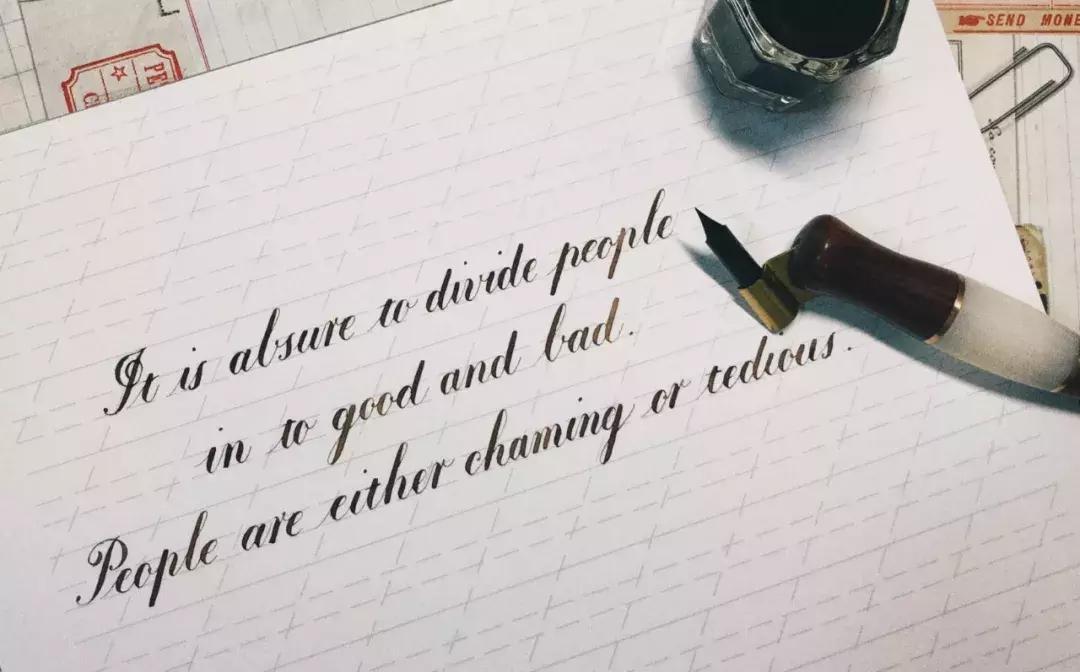 SEND MONE
It is absure to divide people
in to good and bad.
People are either chaming or tedious.